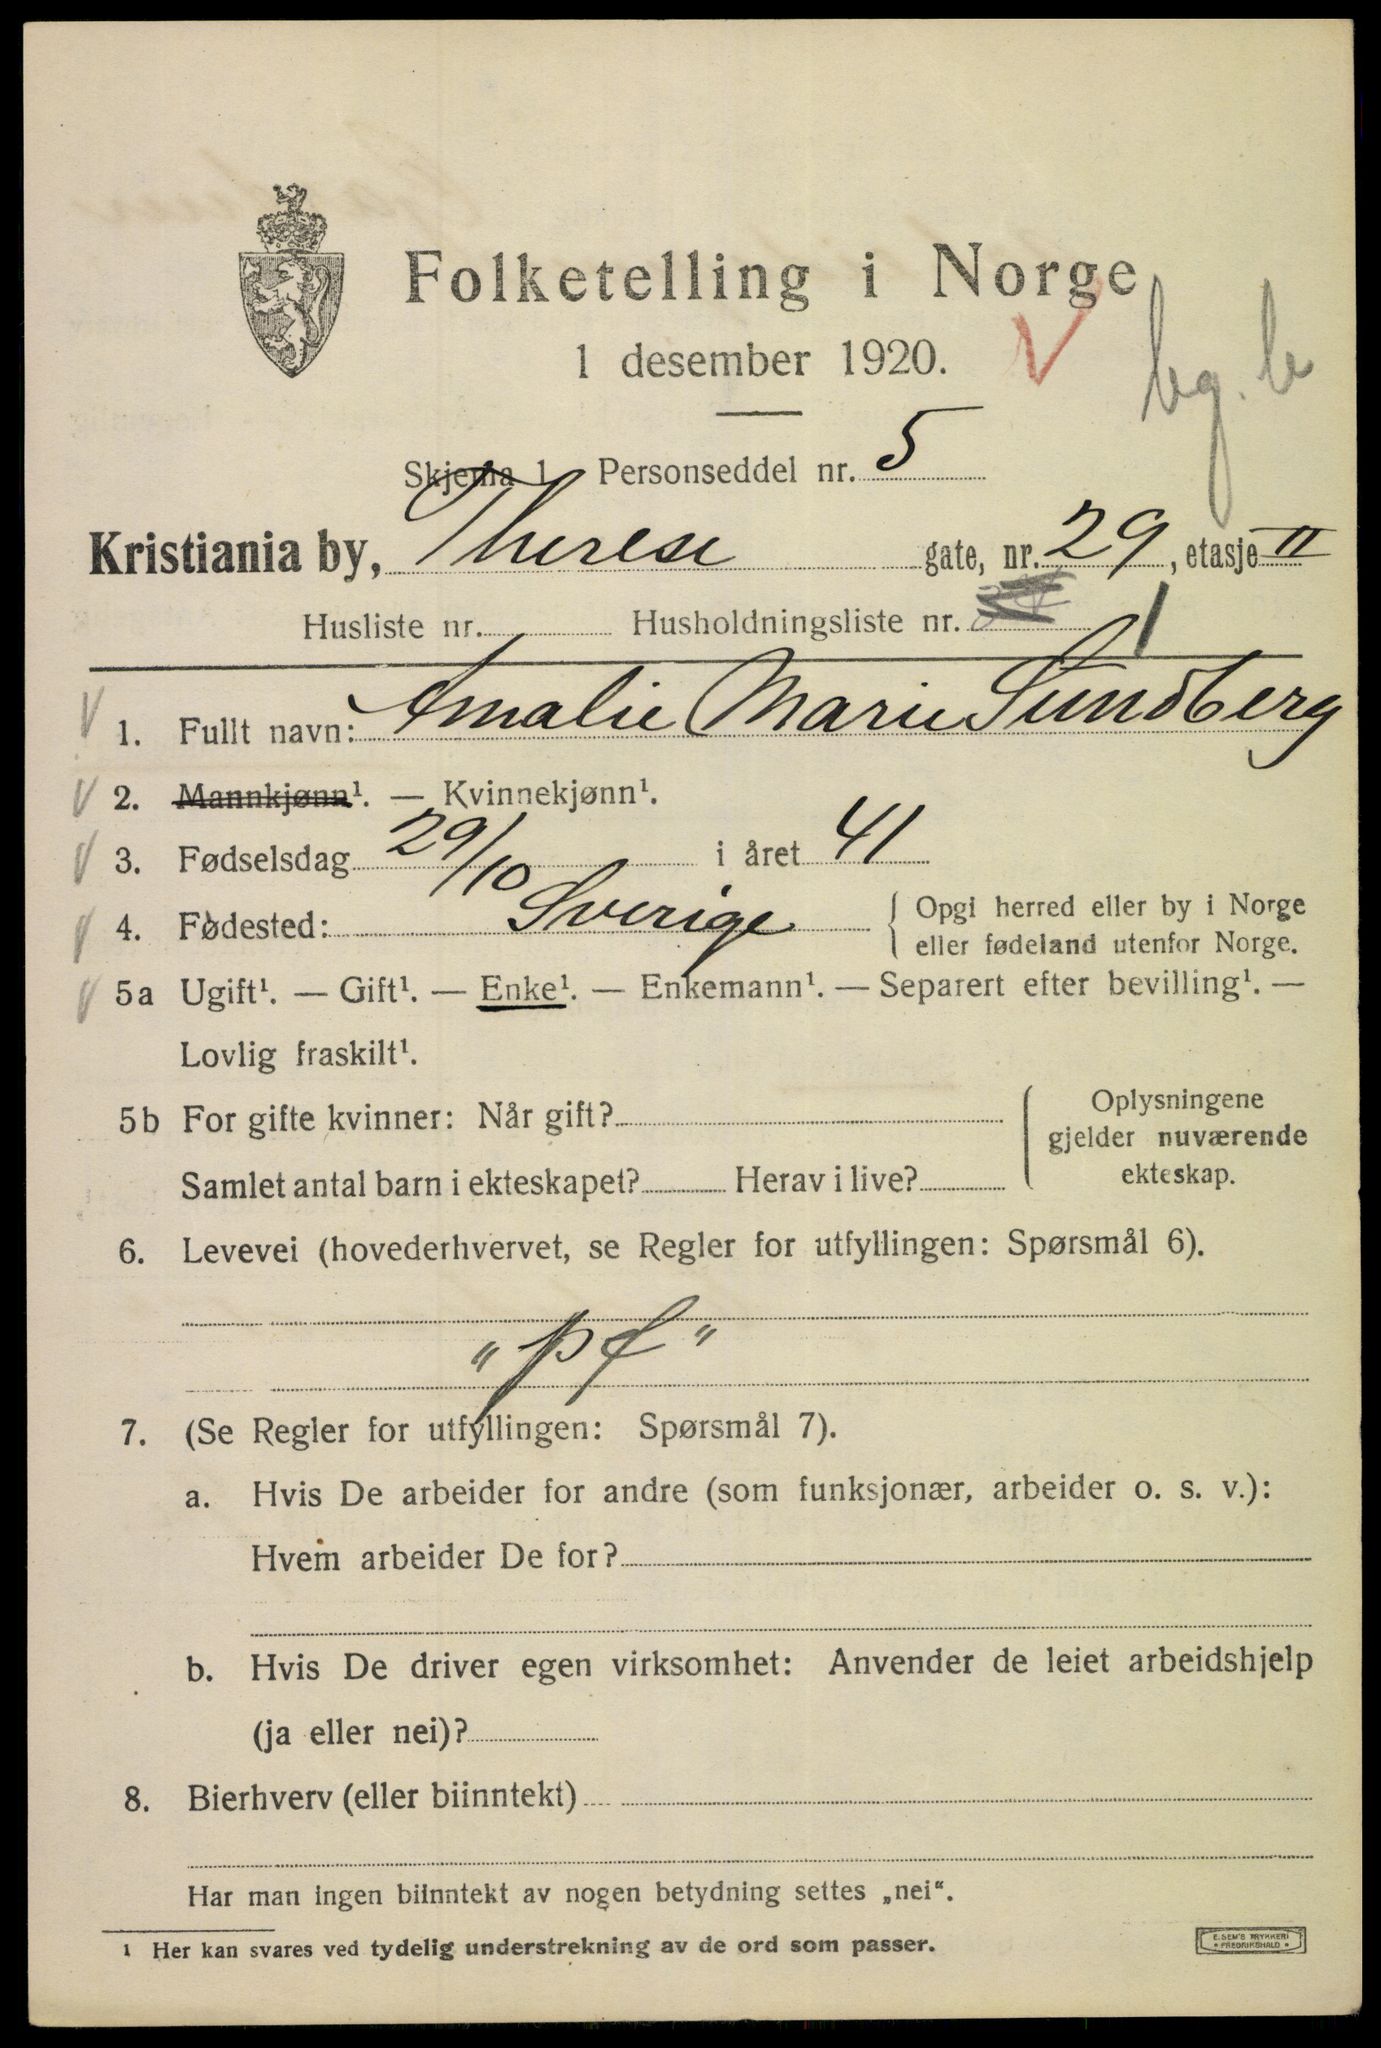 Folketelling i Norge
1 desember 1920.
bg. b
Skjema 1 Personseddel nr. 5
Kristiania by, Therese gate, nr. 29, etasje II
Husliste nr. Husholdningsliste nr. 1
1. Fullt navn: Amalie Marie Sundberg
2. Mannkjønn¹. — Kvinnekjønn¹.
3. Fødselsdag 29/10 i året 41
4. Fødested: Sverige { Opgi herred eller by i Norge
eller fødeland utenfor Norge.
5a Ugift¹. — Gift¹. — Enke¹. — Enkemann¹. — Separert efter bevilling¹. —
Lovlig fraskilt¹.
5b For gifte kvinner: Når gift?
Samlet antal barn i ekteskapet? Herav i live?
{ Oplysningene
gjelder nuværende
ekteskap.
6. Levevei (hovederhvervet, se Regler for utfyllingen: Spørsmål 6).
"pf"
7. (Se Regler for utfyllingen: Spørsmål 7).
a. Hvis De arbeider for andre (som funksjonær, arbeider o. s. v.):
Hvem arbeider De for?
b. Hvis De driver egen virksomhet: Anvender de leiet arbeidshjelp
(ja eller nei)?
8. Bierhverv (eller biinntekt)
Har man ingen biinntekt av nogen betydning settes „nei“.
¹ Her kan svares ved tydelig understrekning av de ord som passer.
E. SEM'S TRYKKERI
• FREDRIKSHALD •